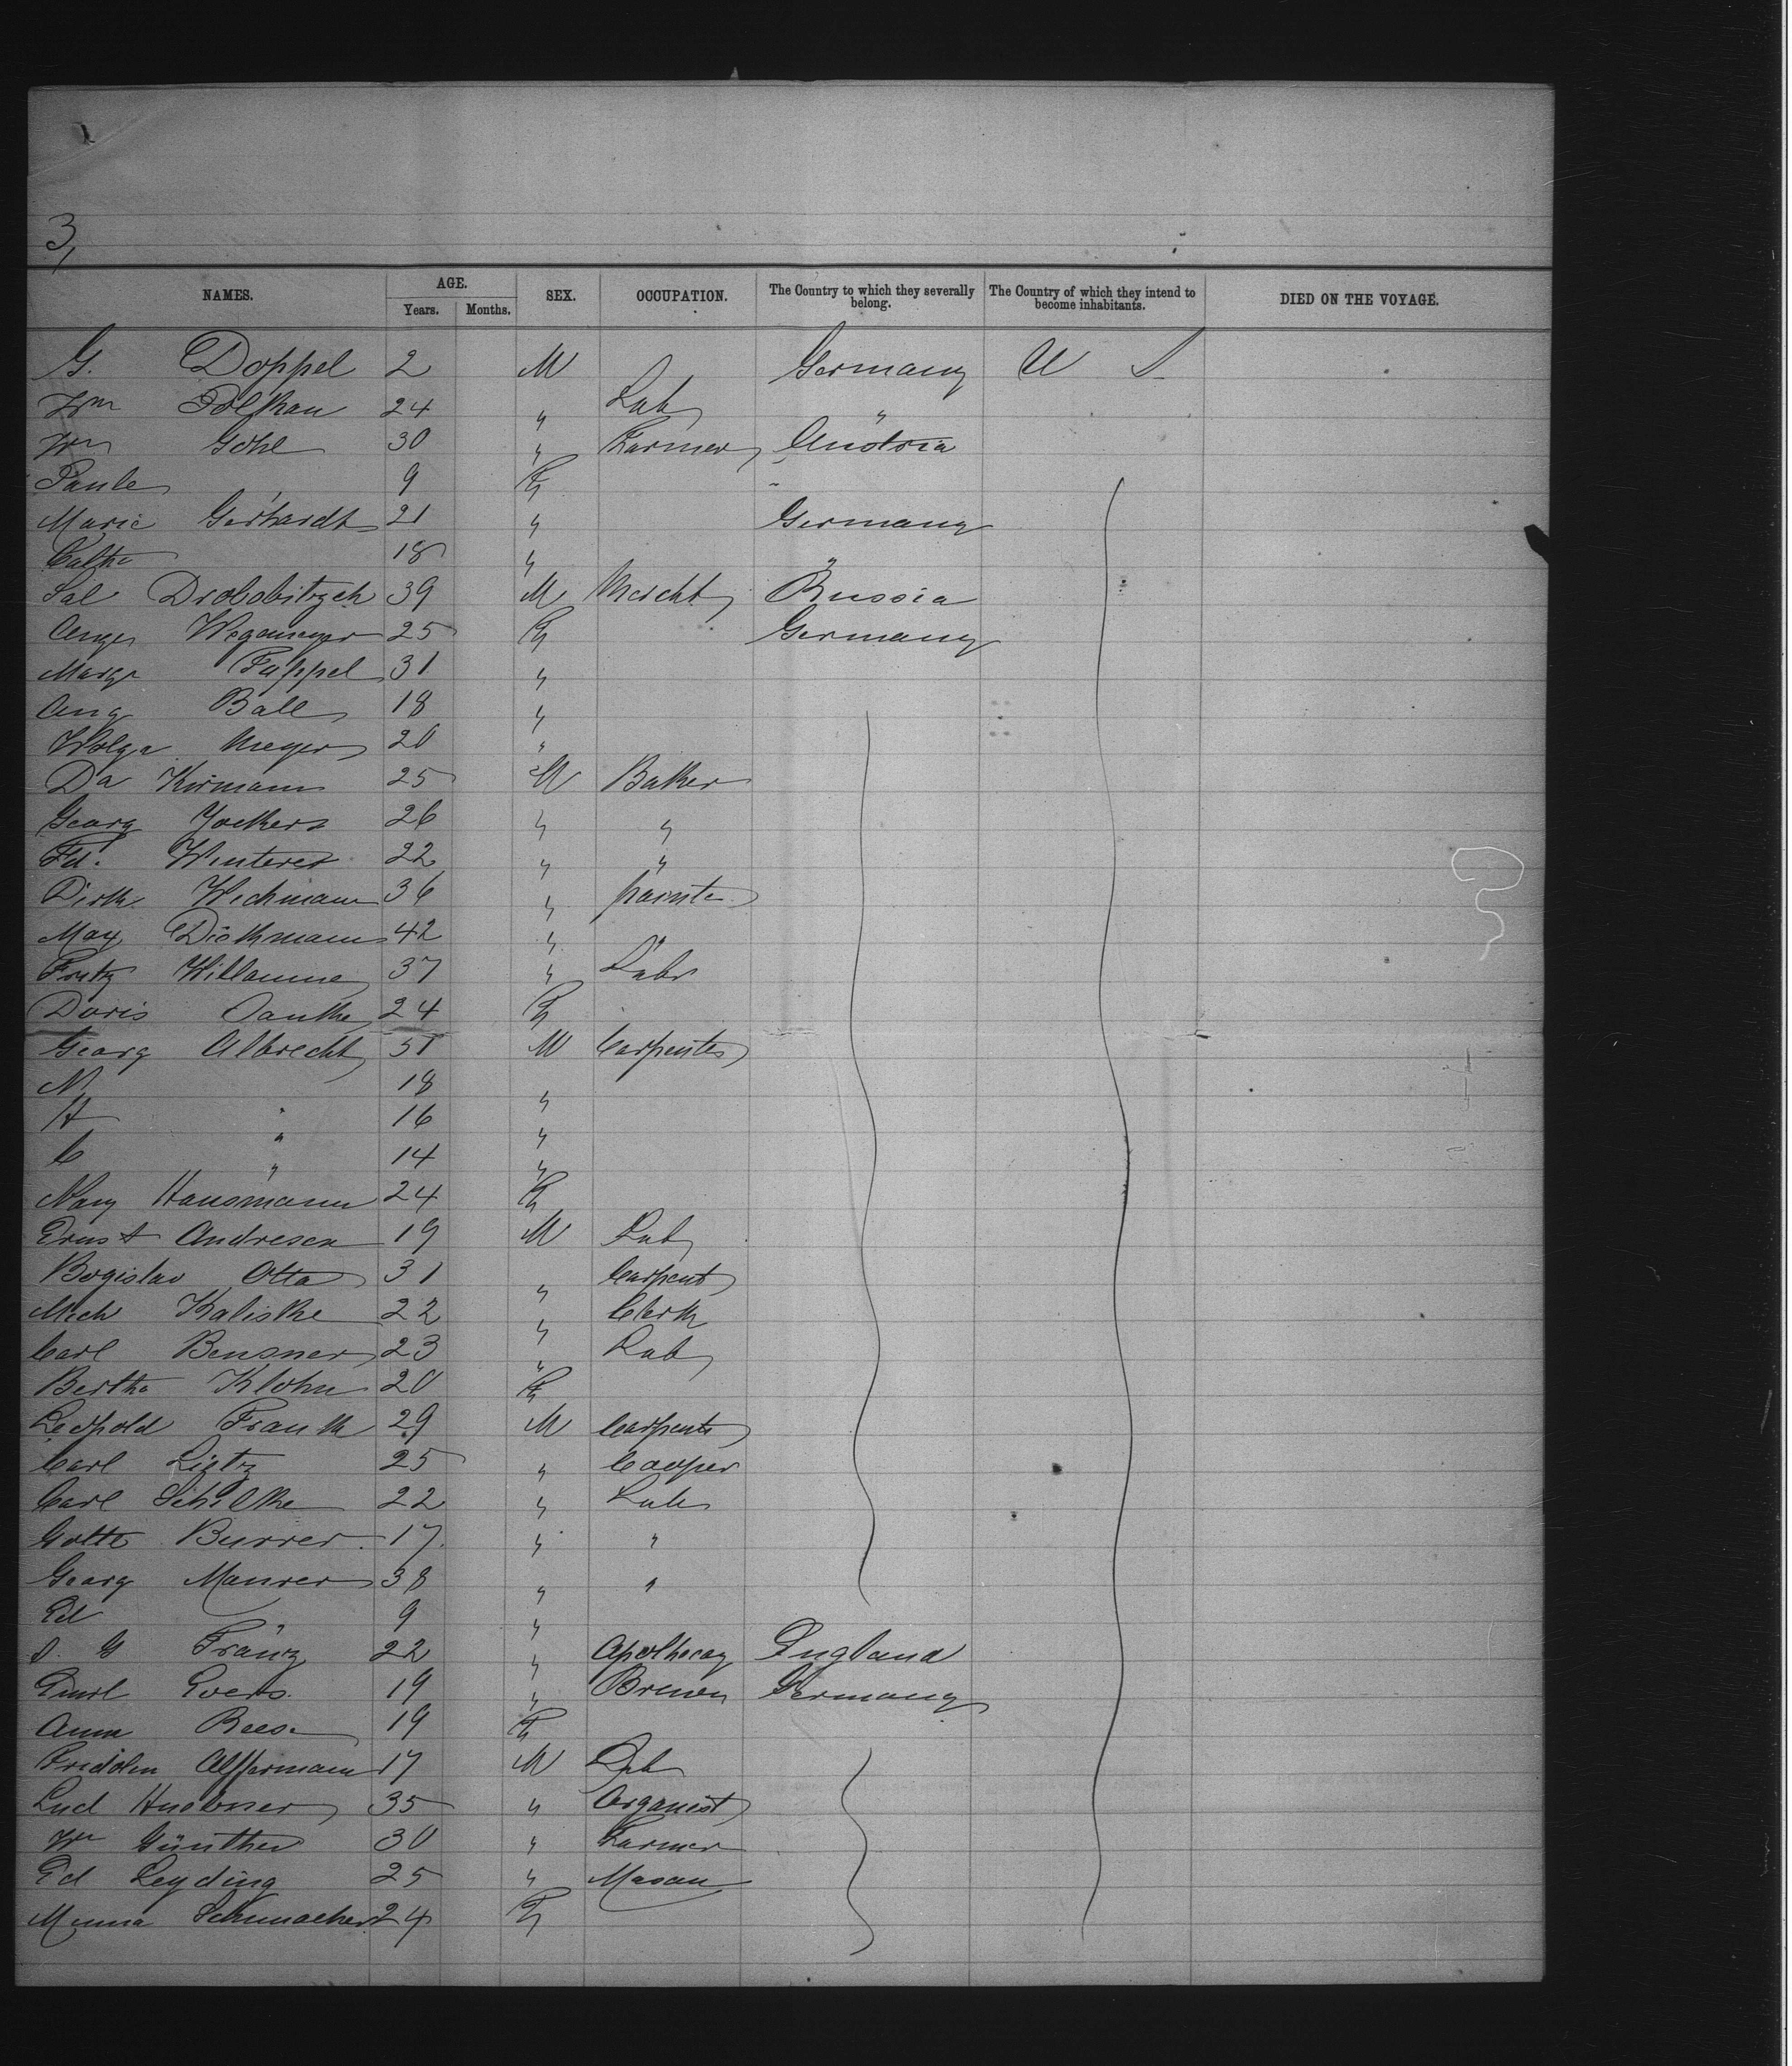 3,
NAMES. AGE. SEX. OCCUPATION. The Country to which they severally belong. The Country of which they intend to become inhabitants. DIED ON THE VOYAGE.
Years. Months.
G. Doppel 2 M Germany U S
Wm Polkau 24 " Lab "
Wm Gohl 30 " Farmer Austria
Paule " 9 F "
Marie Gerhardt 21 " Germany
Cathe 18 " "
Sal Drobobitzch 39 M Mercht Russia
Wegemeyer 25 F Germany
Marge Pappel 31 "
Aug Ball 18 "
Wolga Meyer 20 "
Da Kirmann 25 M Baker
Georg Yockers 26 " "
Fd. Winterer 22 " "
Dirk Wichmann 36 " painter
Max Diekmann 42 " "
Fritz Willamme 37 " Labr
Doris Janke 24 F
Georg Albrecht 51 M Carpenter
N " 18 "
H " 16 "
C " 14 "
Mary Hausmann 24 F
Ernst Andresen 19 M Lab
Bogislav Otto 31 " Carpent
Mich Kaliske 22 " Clerk
Carl Bensner 23 " Lab
Bertha Klohn 20 F
Leopold Frank 29 M Carpentr
Carl Lietz 25 " Cooper
Carl Schilke 22 " Lab
Gotte Burrer 17 " "
Georg Maurer 38 " "
Ed " 9 "
S. G Franz 22 " Apothecay England
Emil Evers 19 " Brewer Germany
Anna Reese 19 F
Fridolin Alffermann 17 M Lab
Lud Huebner 35 " Organist
Wm Günther 30 " Farmer
Ed Leyding 25 " Mason
Minna Schumacher 24 F